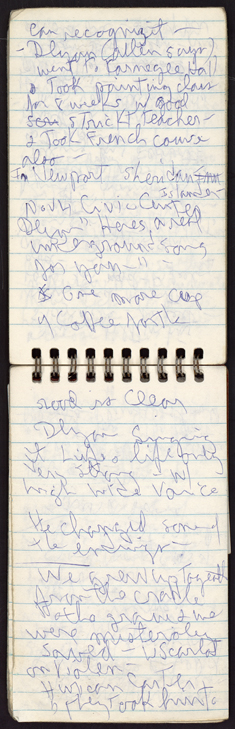 can recognize it —
- Dylan (Allen says)
went to Carnegie Hall
& Took painting class
for 8 weeks w good
strict teacher —
& Took French course
also —
In Newport Sheridan
Islander
North Civic Center
Dylan "Heres a real
underground song
for you — " —
One more cup
of Coffee for the
road is Clean
Dylan Singing
it Lines
very strong w
high wide voice
He changed some of
the endings —
We grew up together
from the cradle
to the grave & me
were mysteriously
saved — Scarlet
on violin —
Hurricane Carter
they took him to